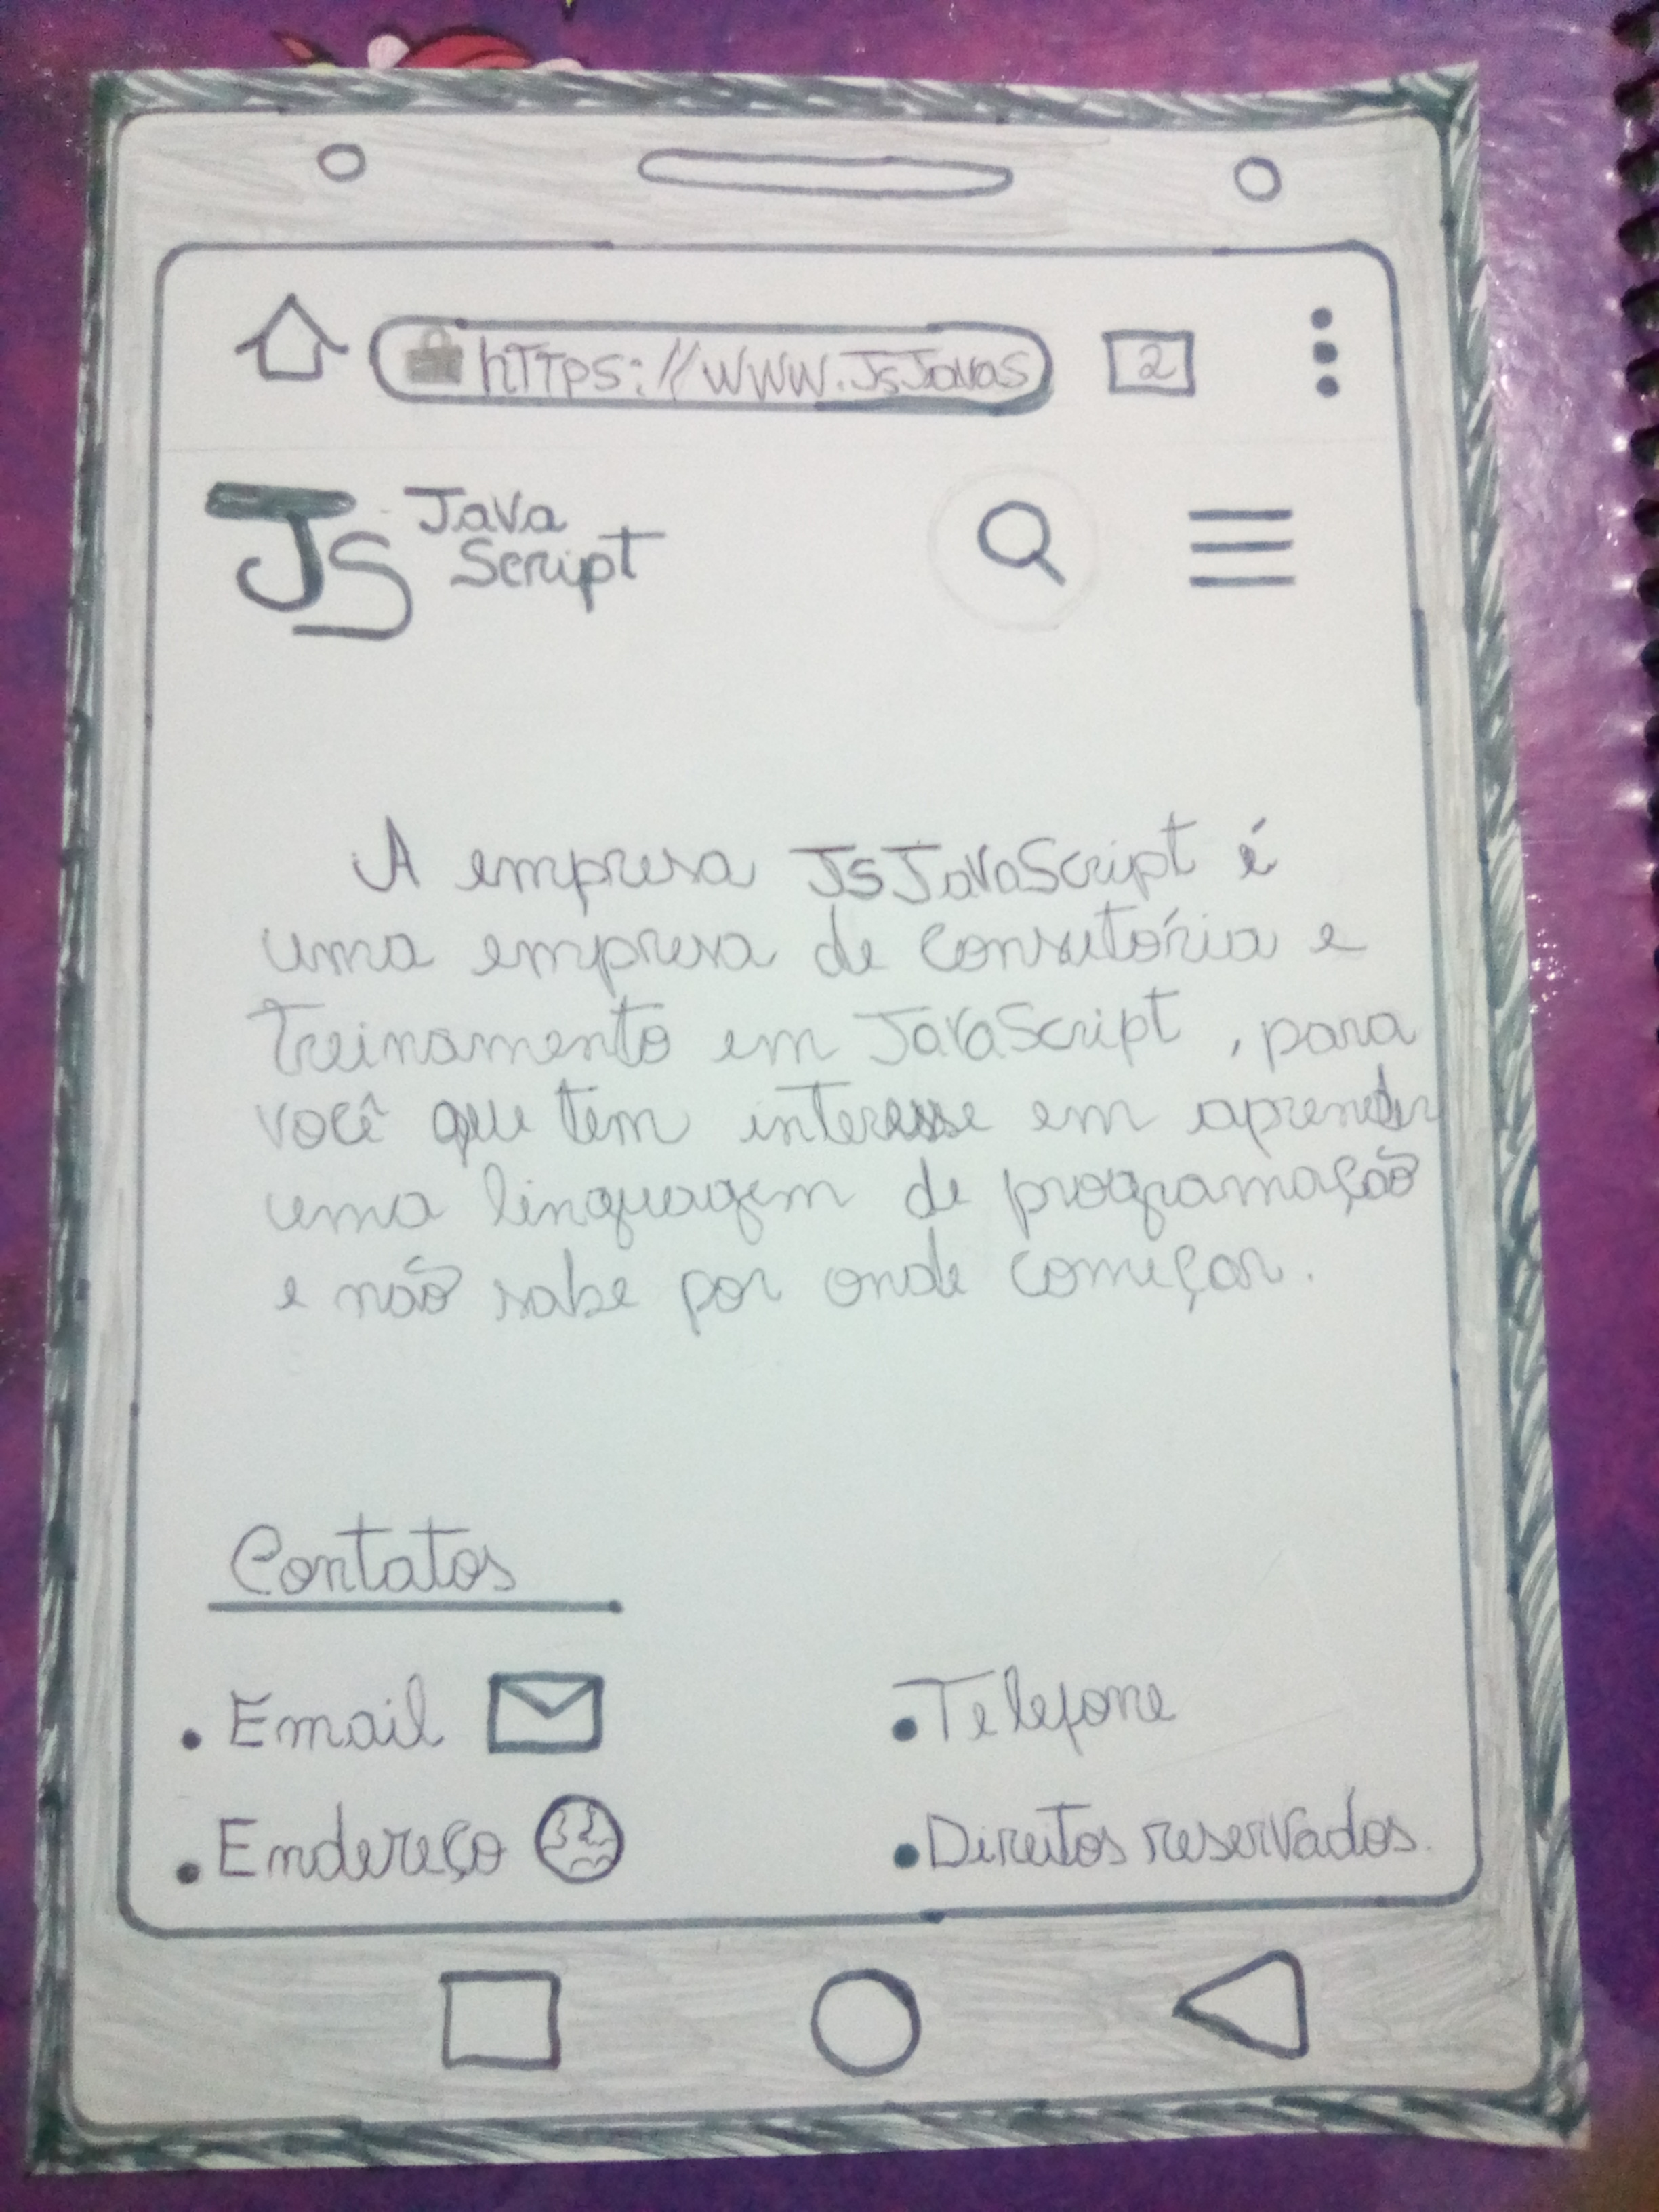 https://www.JsJavas
2
JS Java
Script
A empresa JsJavaScript é
uma empresa de consutória e
Treinamento em JavaScript, para
você que tem interesse em aprender
uma linguagem de programação
e não sabe por onde começar.
Contatos
• Email
• Telefone
• Endereço
• Direitos reservados.